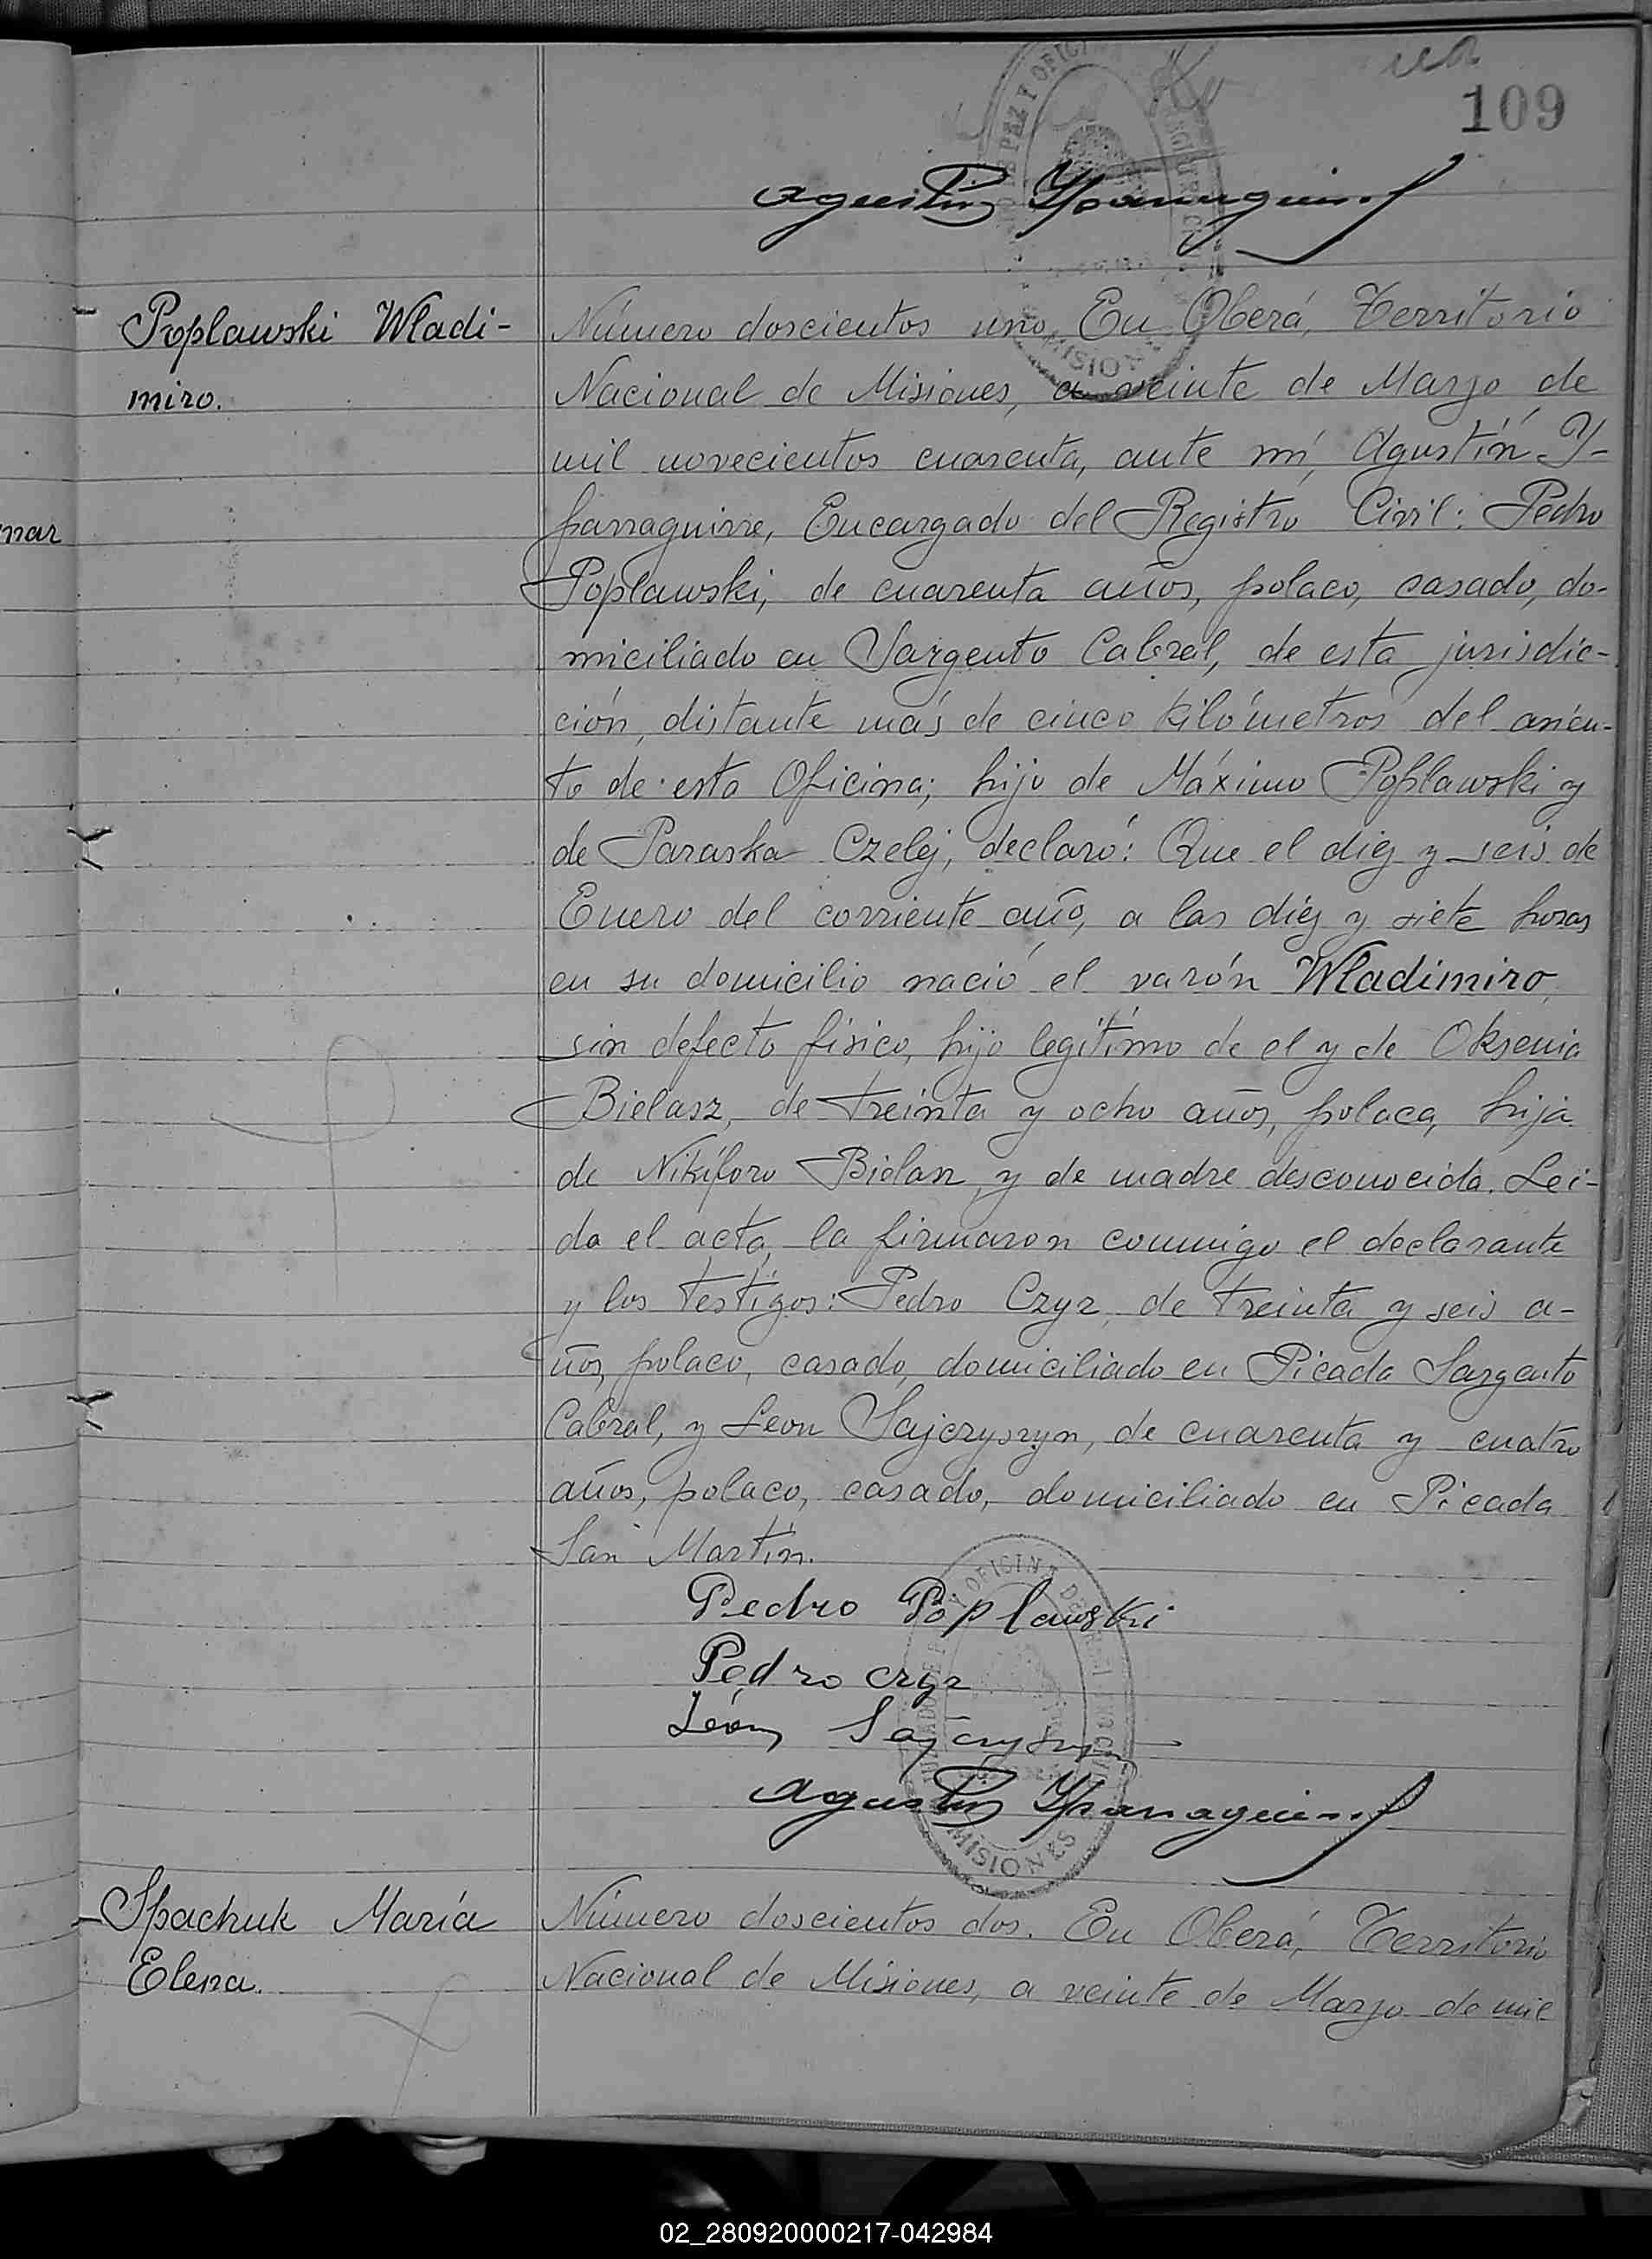 109
Agustín Yparraguirre
Poplawski Wladi-
miro.
Número doscientos uno. En Oberá, Territorio
Nacional de Misiones, a veinte de Marzo de
mil novecientos cuarenta, ante mí, Agustín Y-
parraguirre, Encargado del Registro Civil: Pedro
Poplawski, de cuarenta años, polaco, casado, do-
miciliado en Sargento Cabral, de esta jurisdic-
ción, distante más de cinco kilómetros del asien-
to de esta Oficina; hijo de Máximo Poplawski y
de Paraska Czelej, declaró: Que el diez y seis de
Enero del corriente año, a las diéz y siete horas
en su domicilio nació el varón Wladimiro,
sin defecto físico, hijo legítimo de el y de Oksenia
Bielasz, de treinta y ocho años, polaca, hija
de Nikíforo Bielasz, y de madre desconocida. Lei-
da el acta, la firmaron conmigo el declarante
y los testigos: Pedro Czyz, de treinta y seis a-
ños, polaco, casado, domiciliado en Picada Sargento
Cabral, y Leon Sajczyszyn, de cuarenta y cuatro
años, polaco, casado, domiciliado en Picada
San Martín.
Pedro Poplawski
Pedro Czyz
León Sajczyszyn
Agustín Yparraguirre
MISIONES
Spachuk María
Elena.
Número doscientos dos. En Oberá, Territorio
Nacional de Misiones, a veinte de Marzo de mil
02_280920000217-042984